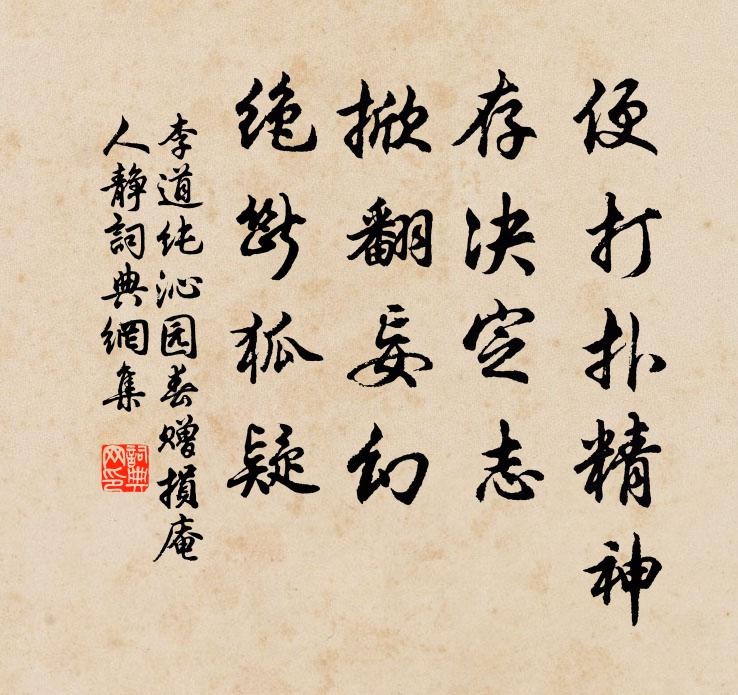 便打扑精神
存决定志
掀翻妄幻
绝断狐疑
李道纯沁园春赠损庵
人静詞典網集
詞典
网印